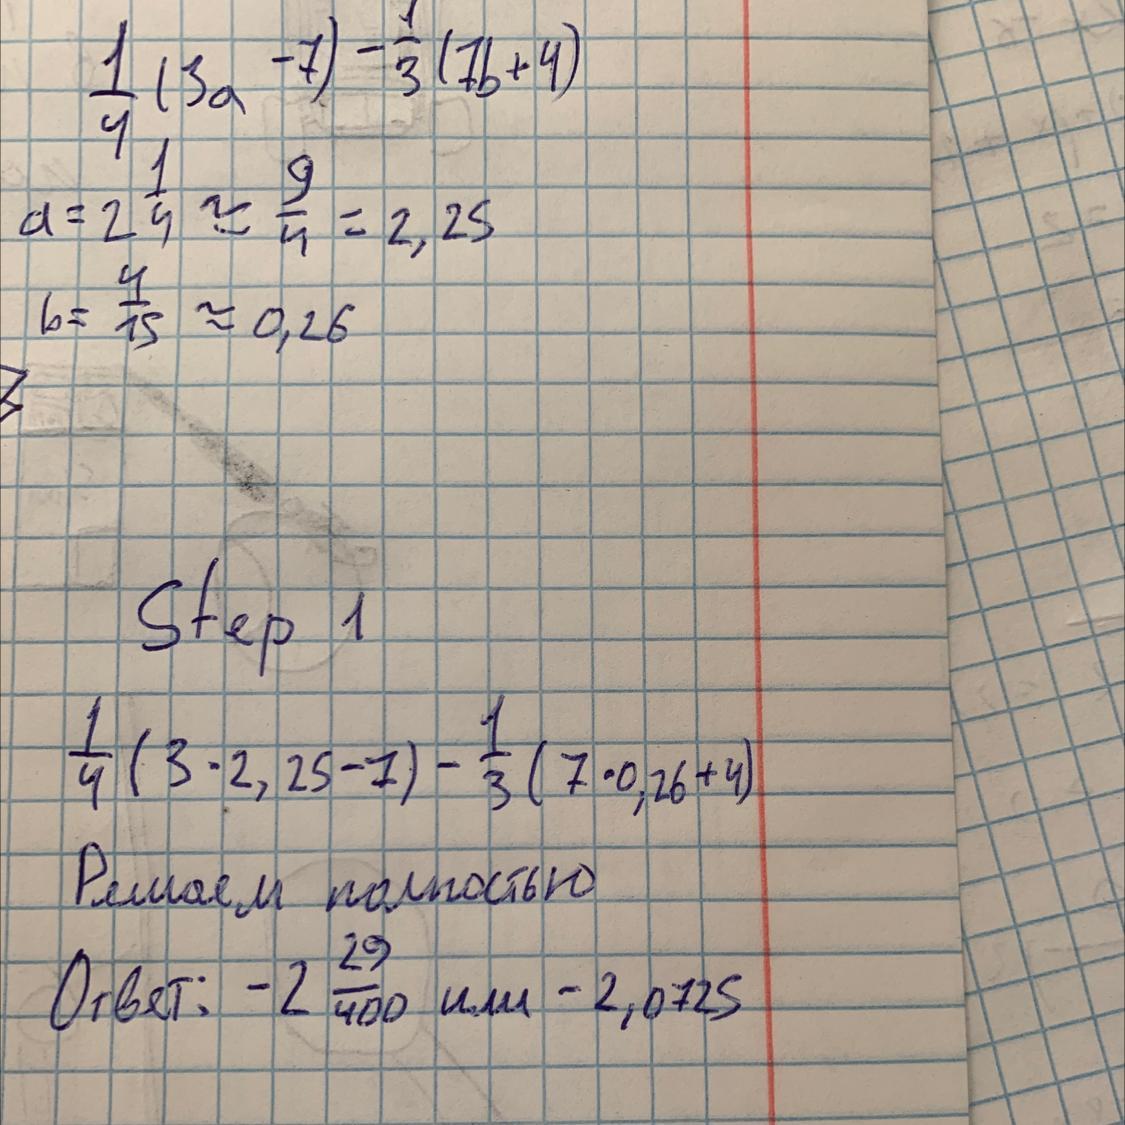 1/4 (3a -7) - 1/3 (7b+4)
a = 2 1/4 ≈ 9/4 = 2,25
b = 4/15 ≈ 0,26
Step 1
1/4 (3·2,25-7) - 1/3 (7·0,26+4)
Решаем полностью
Ответ: -2 29/400 или -2,0725